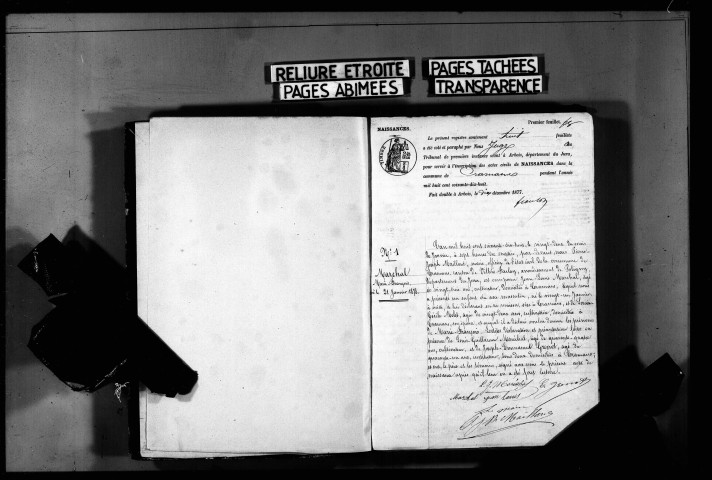 RELIURE ETROITE
PAGES TACHEES
PAGES ABIMEES
TRANSPARENCE
Premier feuillet.
NAISSANCES.
Le présent registre contenant huit feuillets
a été coté et paraphé par Nous Juge du
Tribunal de première instance séant à Arbois, département du Jura,
pour servir à l'inscription des actes civils de NAISSANCES dans la
commune de Cramans pendant l'année
mil huit cent soixante-dix-huit.
Fait double à Arbois, le décembre 1877.
N° 1
Maréchal
Marie François
né le 21 Janvier 1878
L'an mil huit cent soixante dix huit, le vingt deux du mois
de Janvier, à sept heures du matin, par devant nous
Joseph Maillard, maire, officier de l'état civil de la commune de
Cramans, canton de Villers Farlay, arrondissement de Poligny,
département du Jura, est comparu Jean Louis Maréchal, âgé
de vingt huit ans, cultivateur, domicilié à Cramans, lequel nous
a présenté un enfant du sexe masculin, né le vingt un Janvier
de vingt deux ans, cultivatrice domiciliée à
Cramans, son épouse, et auquel il a déclaré vouloir donner les prénoms
de Marie François. Lesdites déclaration et présentation faites en
présence de Louis Guillaume Maréchal, âgé de quarante quatre
ans, cultivateur, et de Joseph Emmanuel
ans, instituteur, tous deux domiciliés à Cramans;
et ont, le père et les témoins, signé avec nous le présent acte de
naissance après qu'il leur en a été fait lecture.
Maréchal jean louis
Le maire